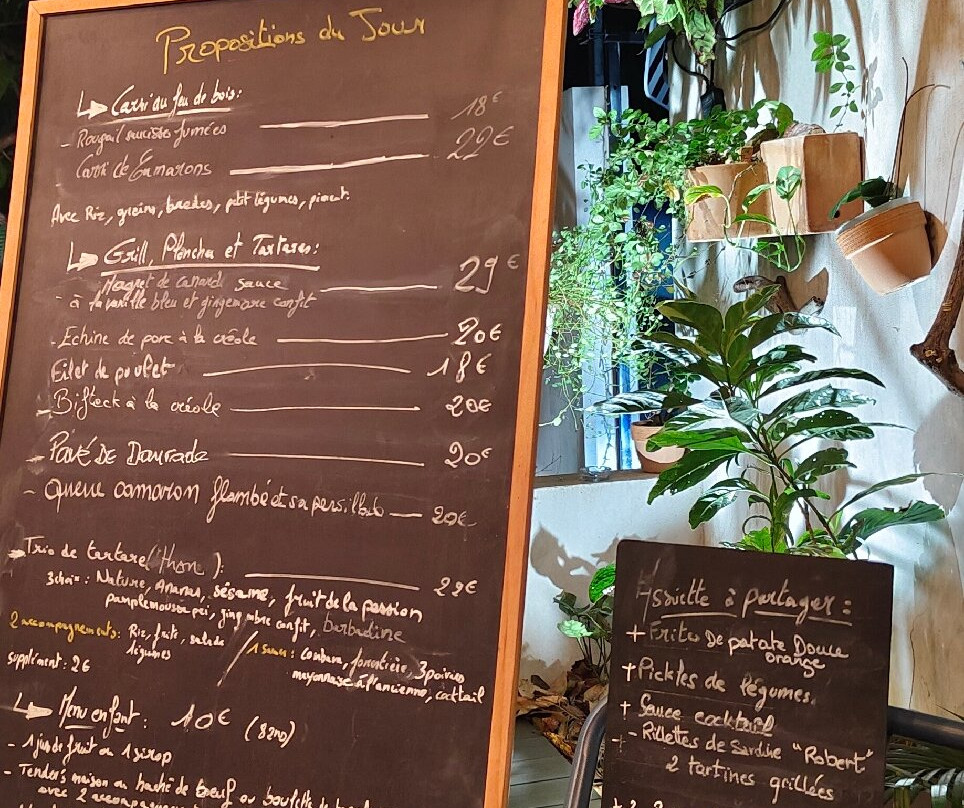 Propositions du Jour
↳ Carri au feu de bois:
- Rougail saucisses fumées 18€
Carri de Camarons 22€
Avec Riz, grains, bredes, petit légumes, piment.
↳ Grill, Plancha et Tartares:
Magret de canard sauce 29€
- à la vanille bleu et gingembre confit
- Echine de porc à la créole 20€
Filet de poulet 18€
- Bifteck à la créole 20€
- Pavé De Daurade 20€
- Queue camaron flambé et sa persillade 20€
Trio de tartare (thon): 22€
3 choix: Nature, Ananas, sésame, fruit de la passion
pamplemousse pei, gingembre confit, barbadine
2 accompagnements: Riz, frite, salade
légumes
supplément: 2€
/ 1 sauce: combava, forestière, 3 poivres
mayonnaise à l'ancienne, cocktail
↳ Menu enfant: 10€ (
- 1 jus de fruit ou 1 sirop
- Tender's maison ou haché de boeuf ou boulette de
avec 2
Assiette à partager:
+ Frites De patate Douce
orange
+ Pickles de légumes.
+ Sauce cocktail
+ - Rillettes de Sardine "Robert"
2 tartines grillées